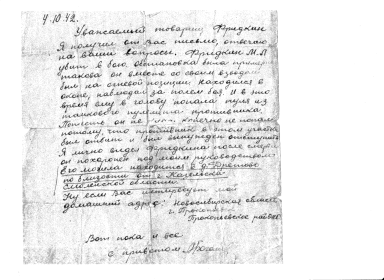 4.10.42.
Уважаемый товарищ Фридкин
Я получил от Вас письмо, отвечаю
на Ваши вопросы. Фридкин М.Л
убит в бою. обстановка была
такова он вместе со своим взводом
был на огневой позиции. находился в
окопе, наблюдал за полем боя и в это
время ему в голову попала пуля из
танкового пулемета противника.
он не конечно не попал
потому, что противник в этом
был отбит и был вынужден отступить
Я лично видел Фридкина после смерти
он похоронен под моим руководством
его могила находится в д.
по близости от г. Козельска
Смоленской области.
Ну если Вас интересует мой
домашний адрес: Новосибирская область
г. Прокопьевск
Прокопьевский район
Вот пока и все
с приветом